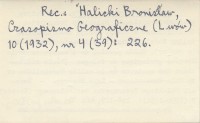 Rec.: Halicki Bronisław,
Czasopismo Geograficzne (Lwów)
10 (1932), nr 4 (39): 226.